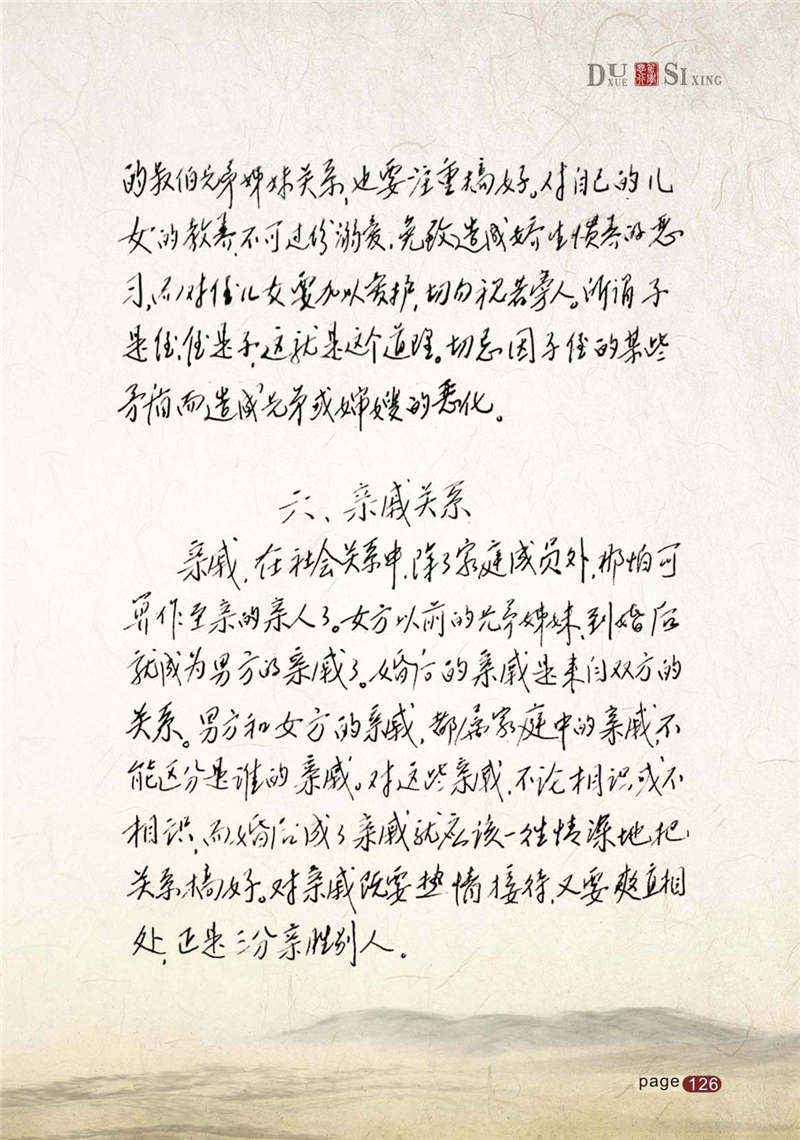 DUXUE SIXING
的叔伯兄弟姊妹关系,也要注重搞好。对自己的儿
女的教养,不可过份溺爱,免致造成娇生惯养的恶
习,而对侄儿女要加以爱护,切勿视若旁人。所谓子
是侄,侄是子,这就是这个道理。切忌因子侄的某些
矛盾而造成兄弟或婶嫂的恶化。
六、亲戚关系
亲戚,在社会关系中,除了家庭成员外,那怕可
算作至亲的亲人了。女方以前的兄弟姊妹,到婚后
就成为男方的亲戚了。婚后的亲戚是来自双方的
关系。男方和女方的亲戚,都属家庭中的亲戚,不
能区分是谁的亲戚。对这些亲戚,不论相识或不
相识,而婚后成了亲戚就应该一往情深地把
关系搞好。对亲戚既要热情接待,又要爽直相
处,正是三分亲胜别人。
page 126